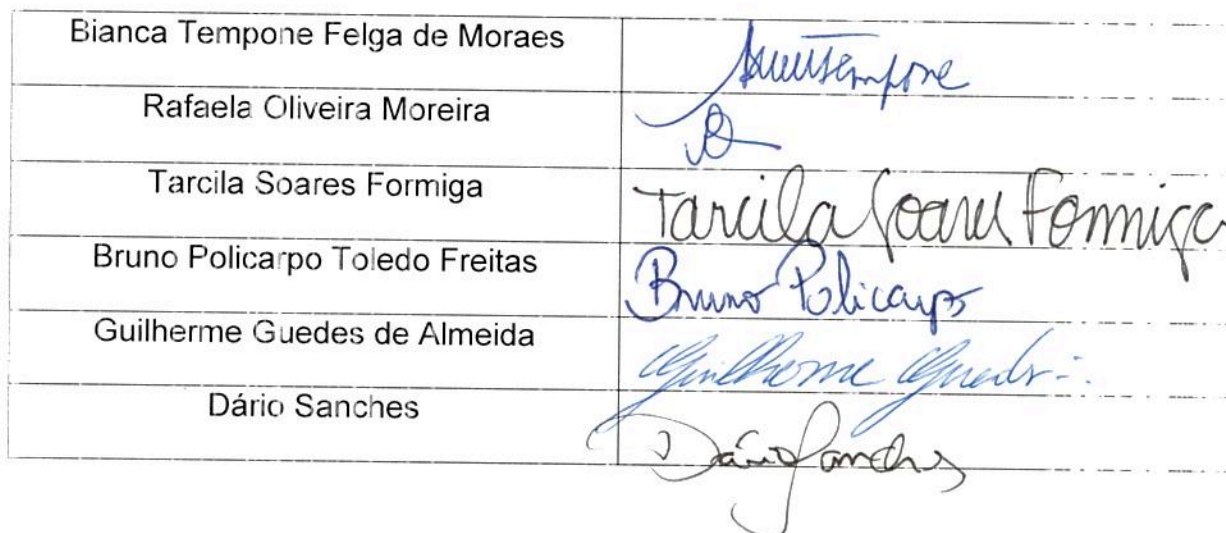 Bianca Tempone Felga de Moraes
Tempone
Rafaela Oliveira Moreira
Tarcila Soares Formiga
Tarcila Soares Formiga
Bruno Policarpo Toledo Freitas
Bruno Policarpo
Guilherme Guedes de Almeida
Guilherme Guedes
Dário Sanches
Dário Sanches